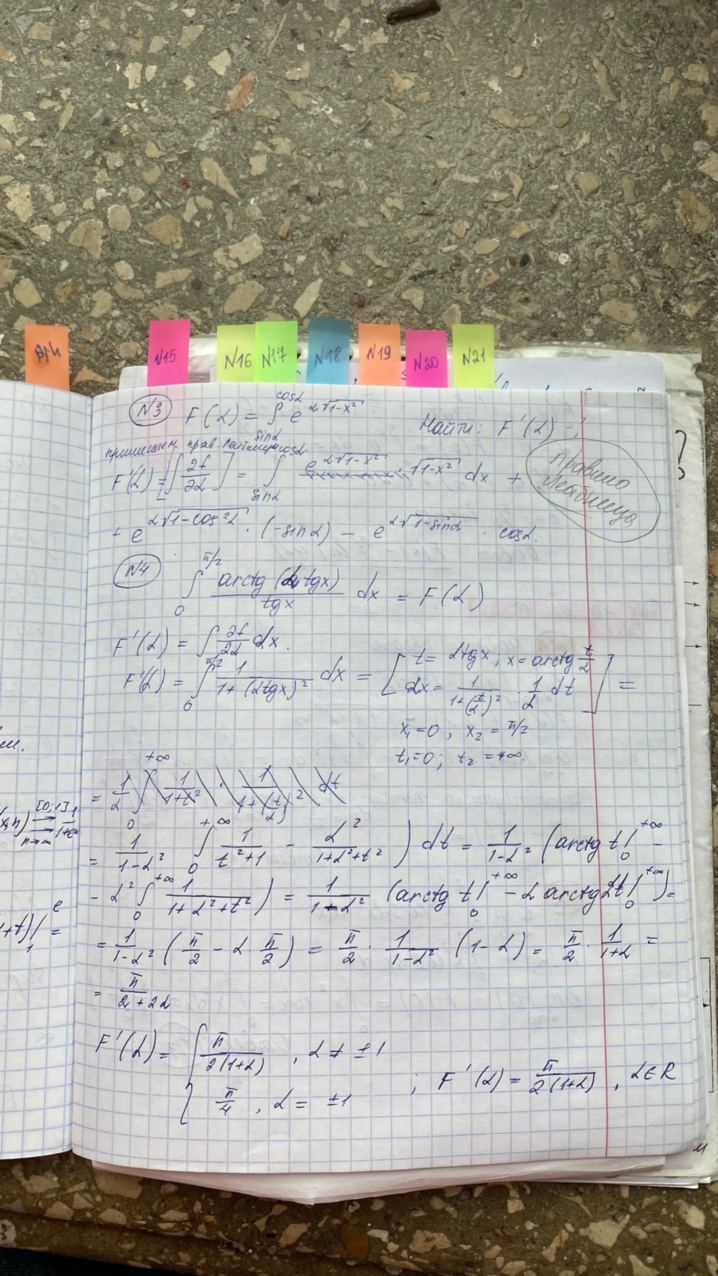 №15
№16
№17
№18
№19
№20
№21
№3 F(α) = ∫_{sinα}^{cosα} e^{α√(1-x²)}
Найти: F'(α) - ?
применяем прав. Лейбница
F'(α) = [∫ ∂f/∂α] = ∫_{sinα}^{cosα} e^{α√(1-x²)} · √(1-x²) dx +
правило
Лейбница
+ e^{α√(1-cos²α)} · (-sinα) - e^{α√(1-sinα)} · cosα.
№4
∫_0^{π/2} arctg(α tgx)/tgx dx = F(α)
F'(α) = ∫ ∂f/∂α dx.
F'(α) = ∫_0^{π/2} 1/(1+(αtgx)²) dx = [t = αtgx, x = arctg t/α
dx = 1/(1+(t/α)²) · 1/α dt] =
x₁=0, x₂ = π/2
t₁=0; t₂ = +∞
= 1/α ∫_0^{+∞} 1/(1+t²) · 1/(1+(t/α)²) dt
= 1/(1-α²) ∫_0^{+∞} 1/(t²+1) - α²/(1+α²+t²) ) dt = 1/(1-α²) (arctg t|_0^{+∞} -
- α² ∫_0^{+∞} 1/(1+α²+t²) ) = 1/(1-α²) (arctg t|_0^{+∞} - α arctg αt|_0^{+∞}) =
= 1/(1-α²) (π/2 - α π/2) = π/2 · 1/(1-α²) (1-α) = π/2 · 1/(1+α) =
= π/(2+2α)
F'(α) = { π/(2(1+α)), α ≠ ±1
π/4, α = ±1
; F'(α) = π/(2(1+α)), α∈R
[0,1]
n→∞